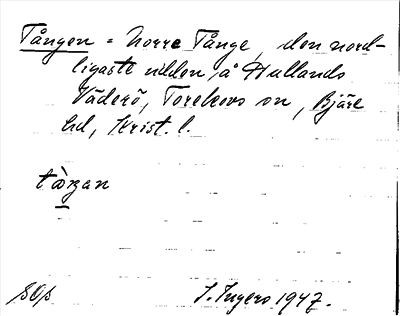 Tången = Norre Tånge, den nord-
ligaste udden å Hallands
Väderö, Torekovs sn, Bjäre
hd, Krist. l.
tàŋan
SOp
I. Ingers 1947.